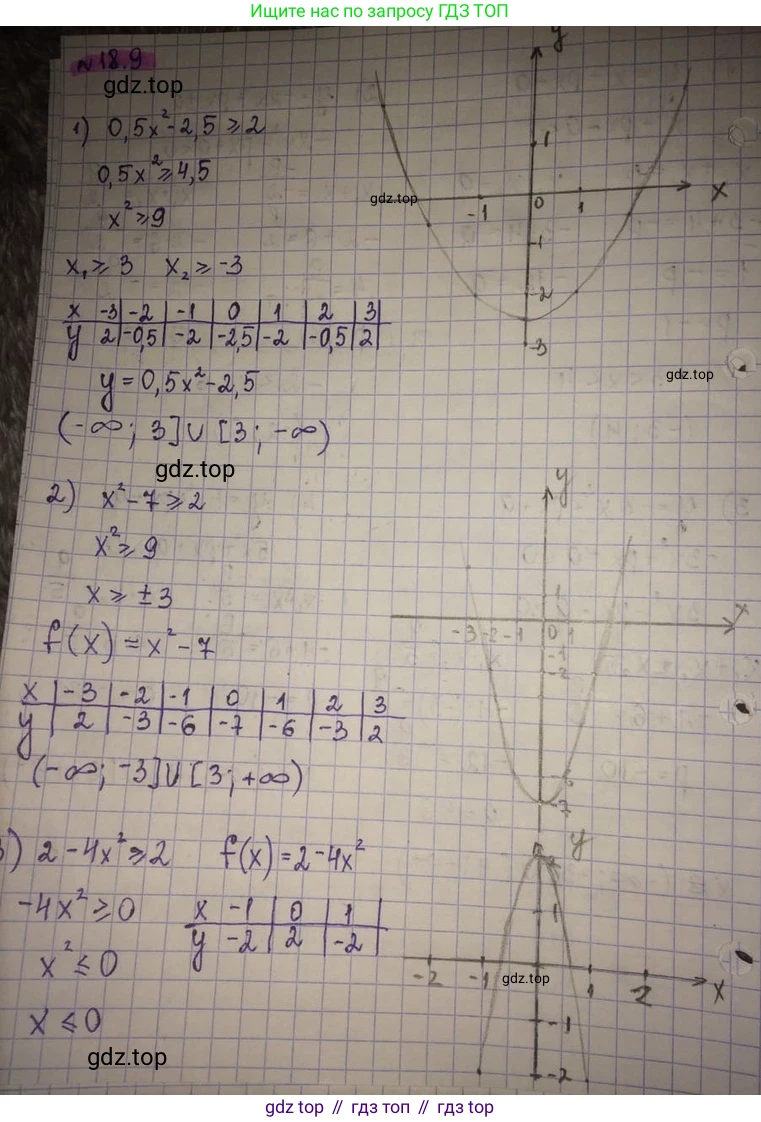 Ищите нас по запросу ГДЗ ТОП
№18.9
gdz.top
1) 0,5x²-2,5 ≥ 2
0,5x² ≥ 4,5
x² ≥ 9
x₁ ≥ 3 x₂ ≥ -3
x -3 -2 -1 0 1 2 3
y 2 -0,5 -2 -2,5 -2 -0,5 2
y = 0,5x²-2,5
(-∞; 3]∪[3; -∞)
y
1
gdz.top
-1 0 1 x
1
-2
-3
gdz.top
gdz.top
2) x²-7 ≥ 2
x² ≥ 9
x ≥ ±3
f(x) = x²-7
x -3 -2 -1 0 1 2 3
y 2 -3 -6 -7 -6 -3 2
(-∞; -3]∪[3; +∞)
y
1
x
-3 -2 -1 0 1
-1
-2
-7
3) 2-4x² ≥ 2 f(x) = 2-4x²
-4x² ≥ 0
x -1 0 1
y -2 2 -2
x² ≤ 0
x ≤ 0
gdz.top
y
2
1
-2 -1 gdz.top 1 2 x
-1
-2
gdz.top // гдз топ // гдз.топ